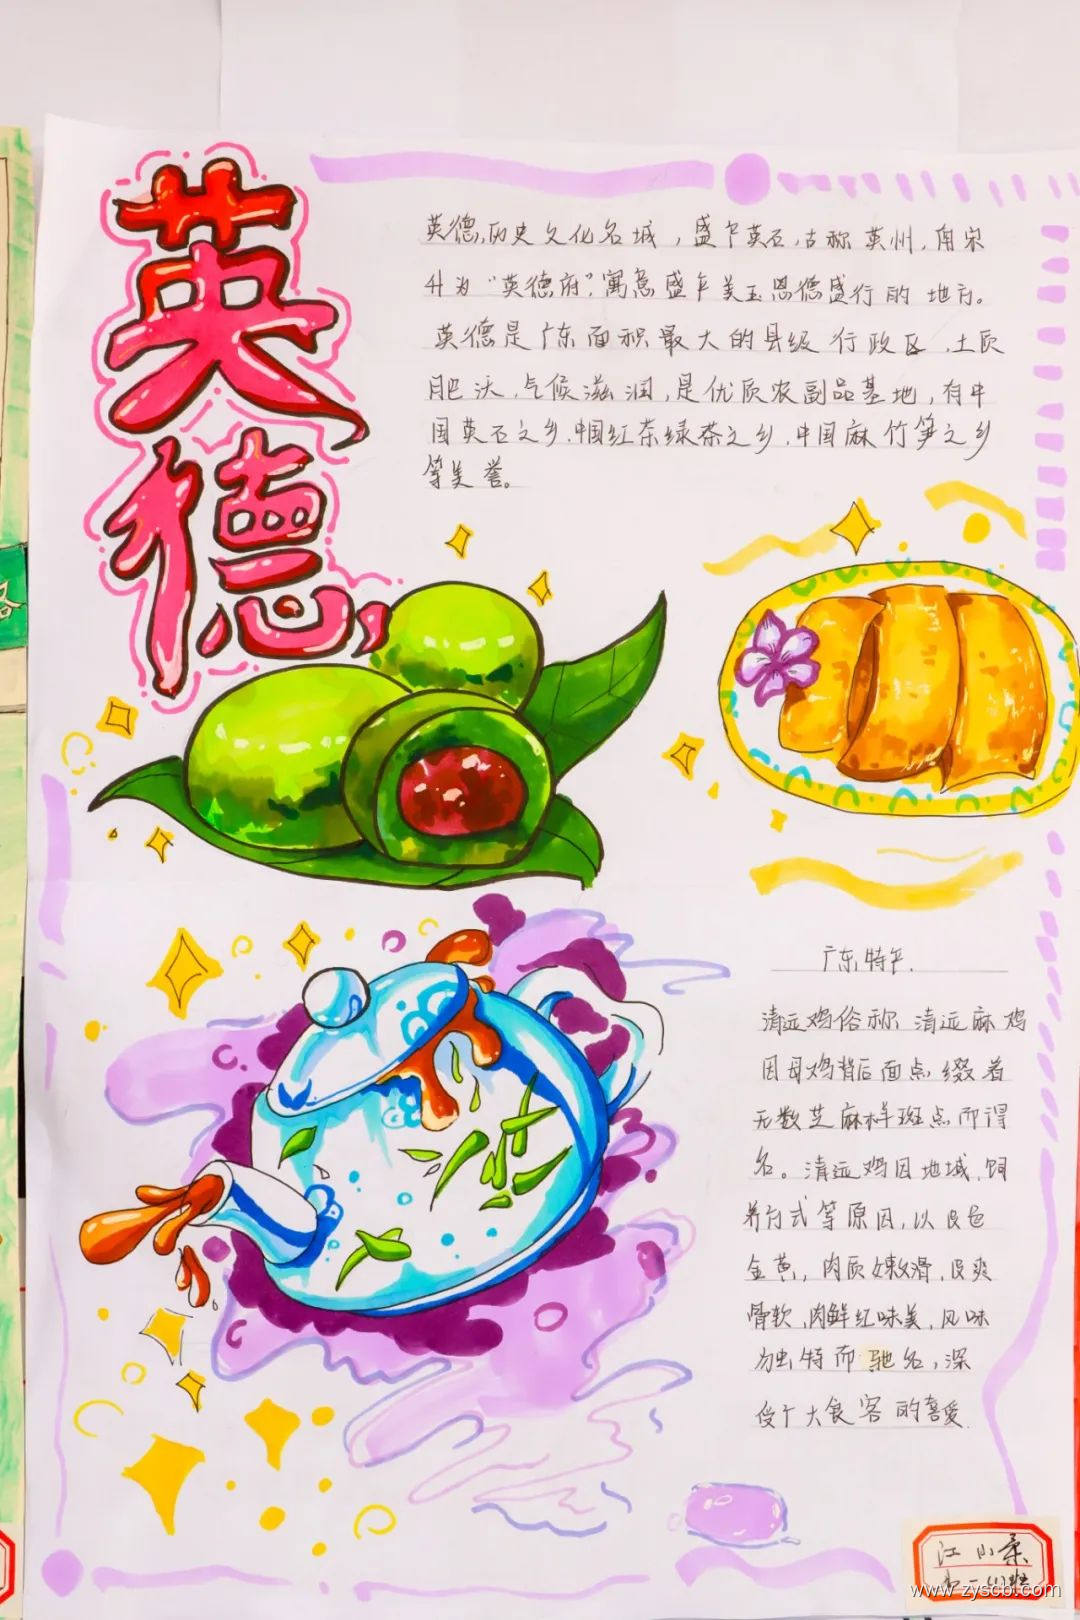 英德
英德,历史文化名城,盛乍英石,古称英州,南宋
升为“英德府”,寓意盛乍美玉恩德盛行的地方。
英德是广东面积最大的县级行政区,土质
肥沃,气候滋润,是优质农副品基地,有中
国英石之乡,中国红茶绿茶之乡,中国麻竹笋之乡
等美誉。
广东特乍.
清远鸡俗称清远麻鸡
因母鸡背后面点缀着
无数芝麻样斑点而得
名。清远鸡因地域,饲
养行式等原因,以皮色
金黄,肉质嫩滑,皮爽
骨软,肉鲜红味美,风味
独特而驰名,深
受广大食客的喜爱.
江小柔
www.zyscbl.com